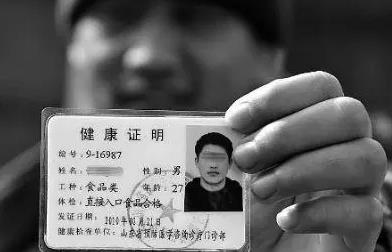 健康证明
编号: 9-16987
姓名: 性别: 男
工种: 食品类 年龄: 27
体检: 直接入口食品合格
发证日期: 2010年02月21日
健康检查单位: 山东省预防医学咨询诊疗门诊部